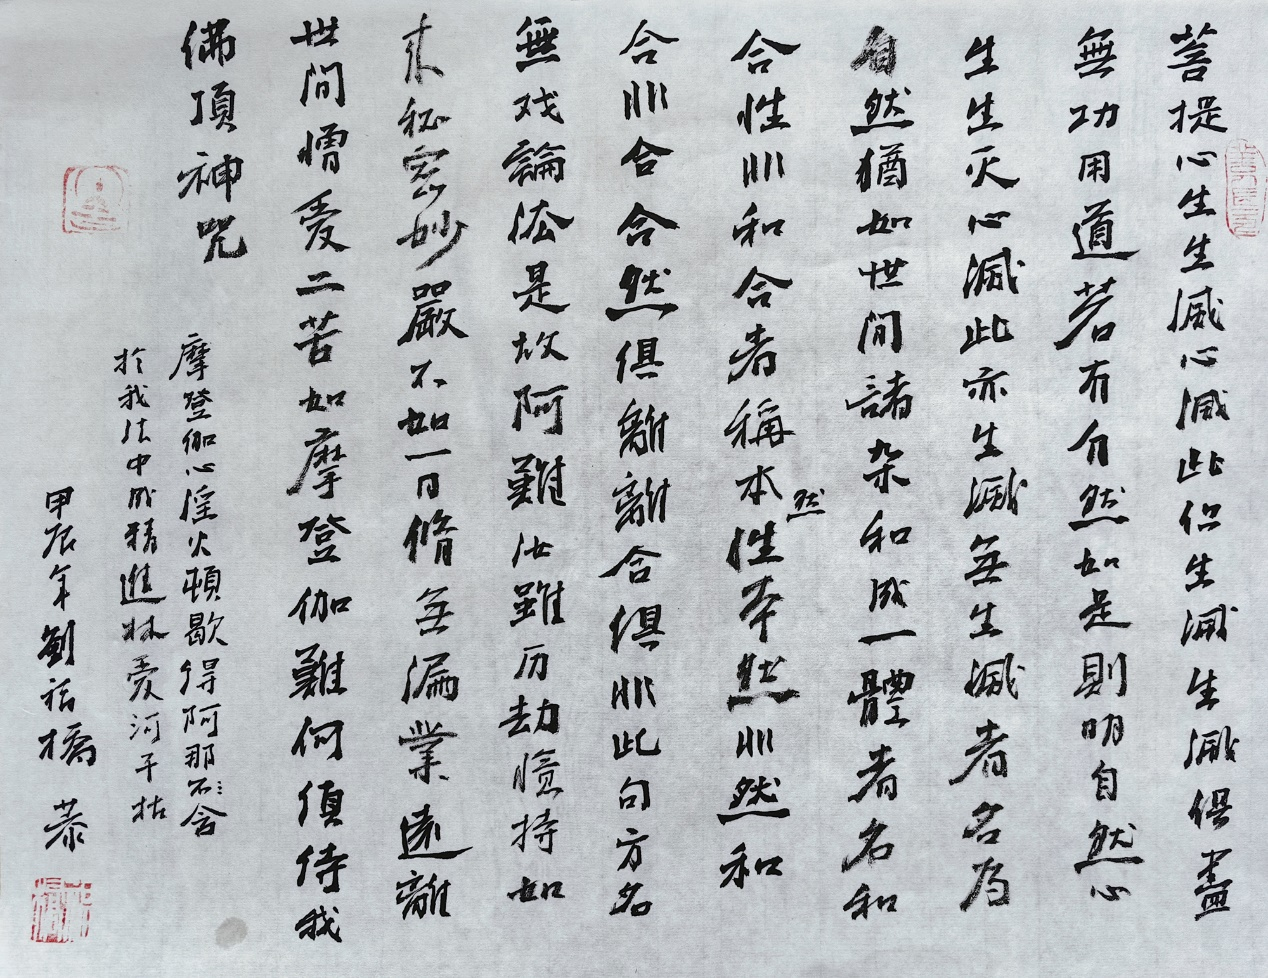 菩提心生生滅心滅此但生滅生滅俱盡
無功用道若有自然如是則明自然心
生生灭心滅此亦生滅無生滅者名為
自然猶如世間諸杂和成一體者名和
合性非和合者稱本然性本然非然和
合非合合然俱離離合俱非此句方名
無戏論法是故阿難汝雖历劫憶持如
来秘密妙嚴不如一日脩無漏業遠離
世間憎爱二苦如摩登伽難何須待我
佛頂神咒
摩登伽心淫火頓歇得阿那不含
於我法中成精進林爱河干枯
甲辰年劉橋 恭